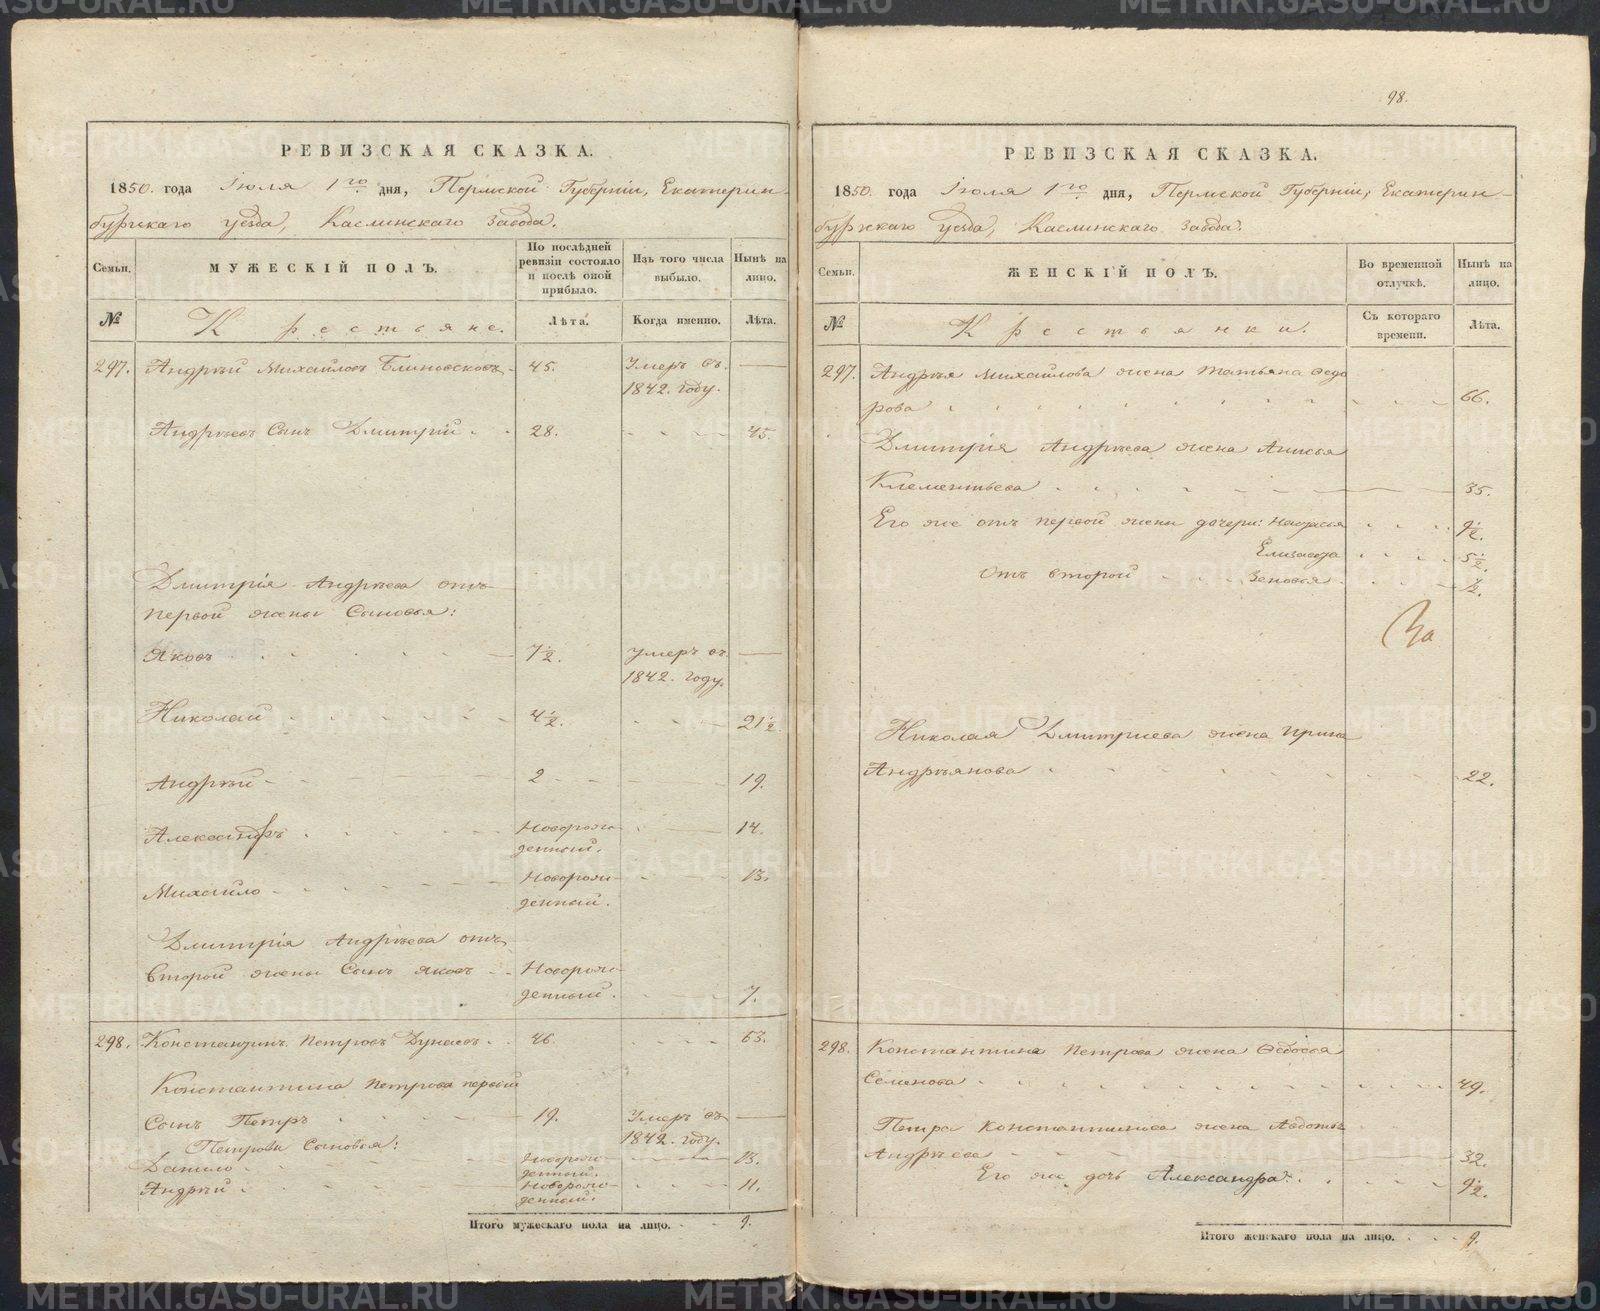 98.
РЕВИЗСКАЯ СКАЗКА.
1850. года Іюля 1го дня, Пермской Губерніи, Екатерин-
бургскаго уезда, Каслинскаго Завода.
Семьи.
МУЖЕСКІЙ ПОЛЪ.
По послѣдней ревизіи состояло и послѣ оной прибыло.
Изъ того числа выбыло.
Нынѣ на лицо.
№
Крестьяне.
Лѣта.
Когда именно.
Лѣта.
297. Андрѣй Михайловъ Блиновсковъ 45. Умеръ въ
1842. году.
Андрѣевъ Сынъ Дмитрій 28. 45.
Дмитрія Андрѣева отъ
первой жены Сыновья:
Яковъ 7½. Умеръ въ
1842. году.
Николай 4½. 21½
Андрѣй 2 19.
Александръ Новорож- 14.
денный.
Михайло Новорож- 13.
денный.
Дмитрія Андрѣева отъ
второй жены Сынъ Яковъ Новорож-
денный. 7.
298. Константинъ Петровъ Дунаевъ 46. 63.
Константина Петрова первый
Сынъ Петръ 19. Умеръ въ
1842. году.
Петровы Сыновья:
Данило Новорож- 13.
денный.
Андрѣй Новорож- 11.
денный.
Итого мужескаго пола на лицо. 9.
РЕВИЗСКАЯ СКАЗКА.
1850. года Іюля 1го дня, Пермской Губерніи, Екатерин-
бургскаго уезда, Каслинскаго Завода.
Семьи.
ЖЕНСКІЙ ПОЛЪ.
Во временной отлучкѣ.
Нынѣ на лицо.
№
Крестьянки.
Съ котораго времени.
Лѣта.
297. Андрѣя Михайлова жена Татьяна Ѳедо
рова 66.
Дмитрія Андрѣева жена Анисья
Клементьева 35.
Его же отъ первой жены дочери: Настасья 9½.
Елизавета 5½.
отъ второй Зеновья ½.
Николая Дмитриева жена Ирина
Андрѣянова 22.
298. Константина Петрова жена Ѳедосья
Семенова 49.
Петра Константинова жена Авдотья
Андрѣева 32.
Его же дочь Александра 9½.
Итого женскаго пола на лицо. 9.
METRIKI.GASO-URAL.RU